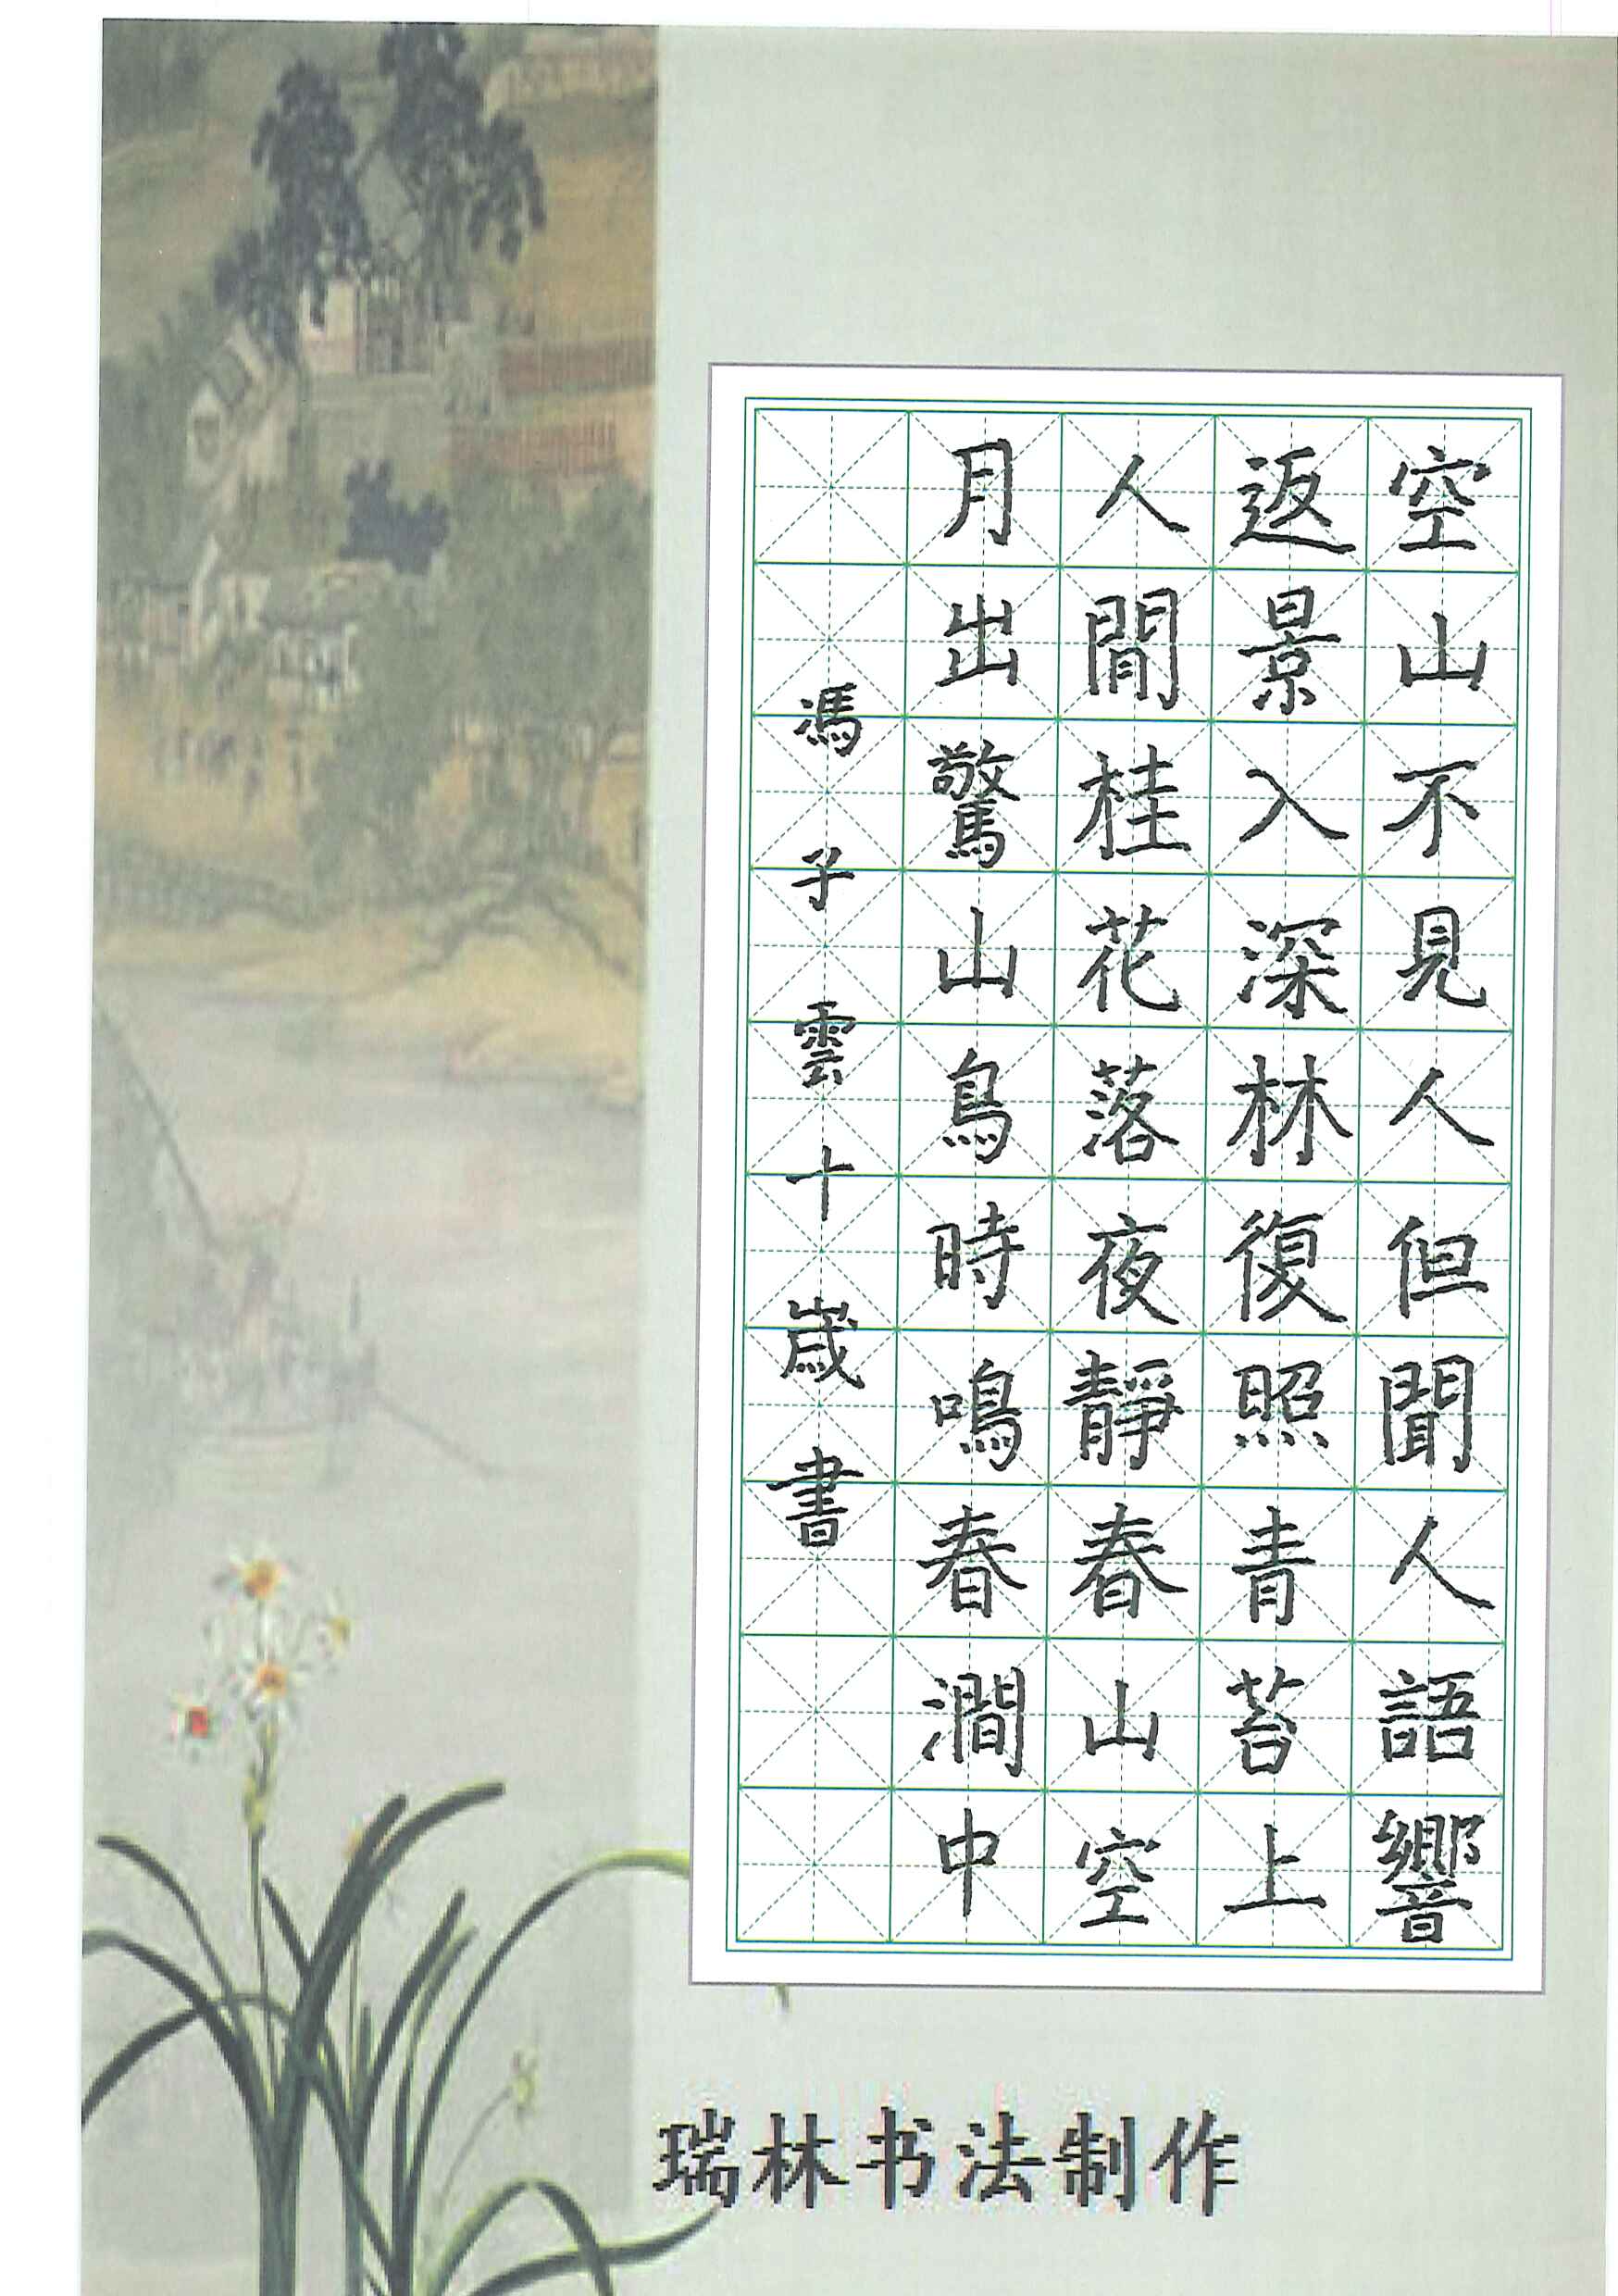 空山不見人但聞人語響
返景入深林復照青苔上
人閒桂花落夜靜春山空
月出驚山鳥時鳴春澗中
馮子雲十歲書
瑞林书法制作